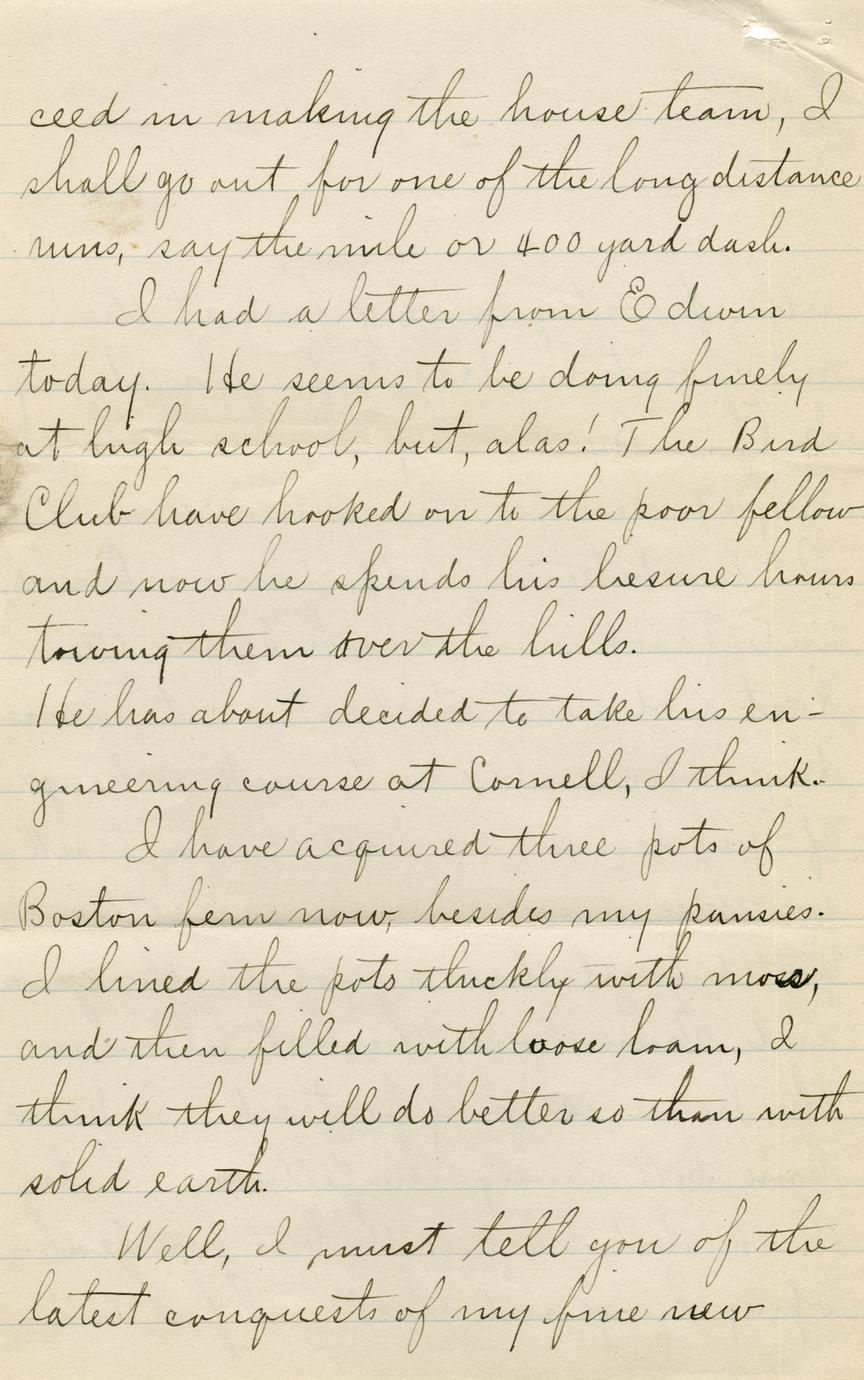 ceed in making the house team, I
shall go out for one of the long distance
runs, say the mile or 400 yard dash.
I had a letter from Edwin
today. He seems to be doing finely
at high school, but, alas! The Bird
Club have hooked on to the poor fellow
and now he spends his liesure hours
towing them over the hills.
He has about decided to take his en-
gineering course at Cornell, I think.
I have acquired three pots of
Boston fern now, besides my pansies.
I lined the pots thickly with moss,
and then filled with loose loam, I
think they will do better so than with
solid earth.
Well, I must tell you of the
latest conquests of my fine new